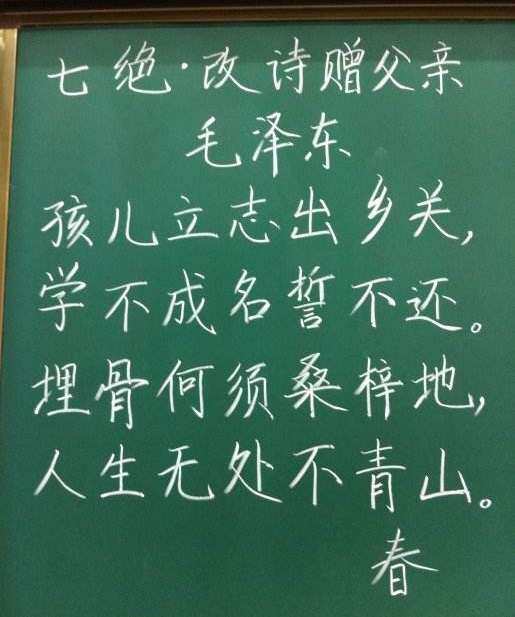 七绝·改诗赠父亲
毛泽东
孩儿立志出乡关,
学不成名誓不还。
埋骨何须桑梓地,
人生无处不青山。
春